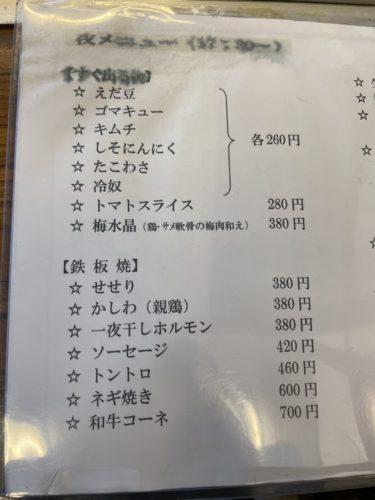 夜メニュー (17:30〜)
【すぐ出る物】
☆ えだ豆
☆ ゴマキュー
☆ キムチ
☆ しそにんにく
☆ たこわさ
☆ 冷奴
各260円
☆ トマトスライス 280円
☆ 梅水晶（鶏・サメ軟骨の梅肉和え） 380円
【鉄 板 焼】
☆ せせり 380円
☆ かしわ（親鶏） 380円
☆ 一夜干しホルモン 380円
☆ ソーセージ 420円
☆ トントロ 460円
☆ ネギ焼き 600円
☆ 和牛コーネ 700円